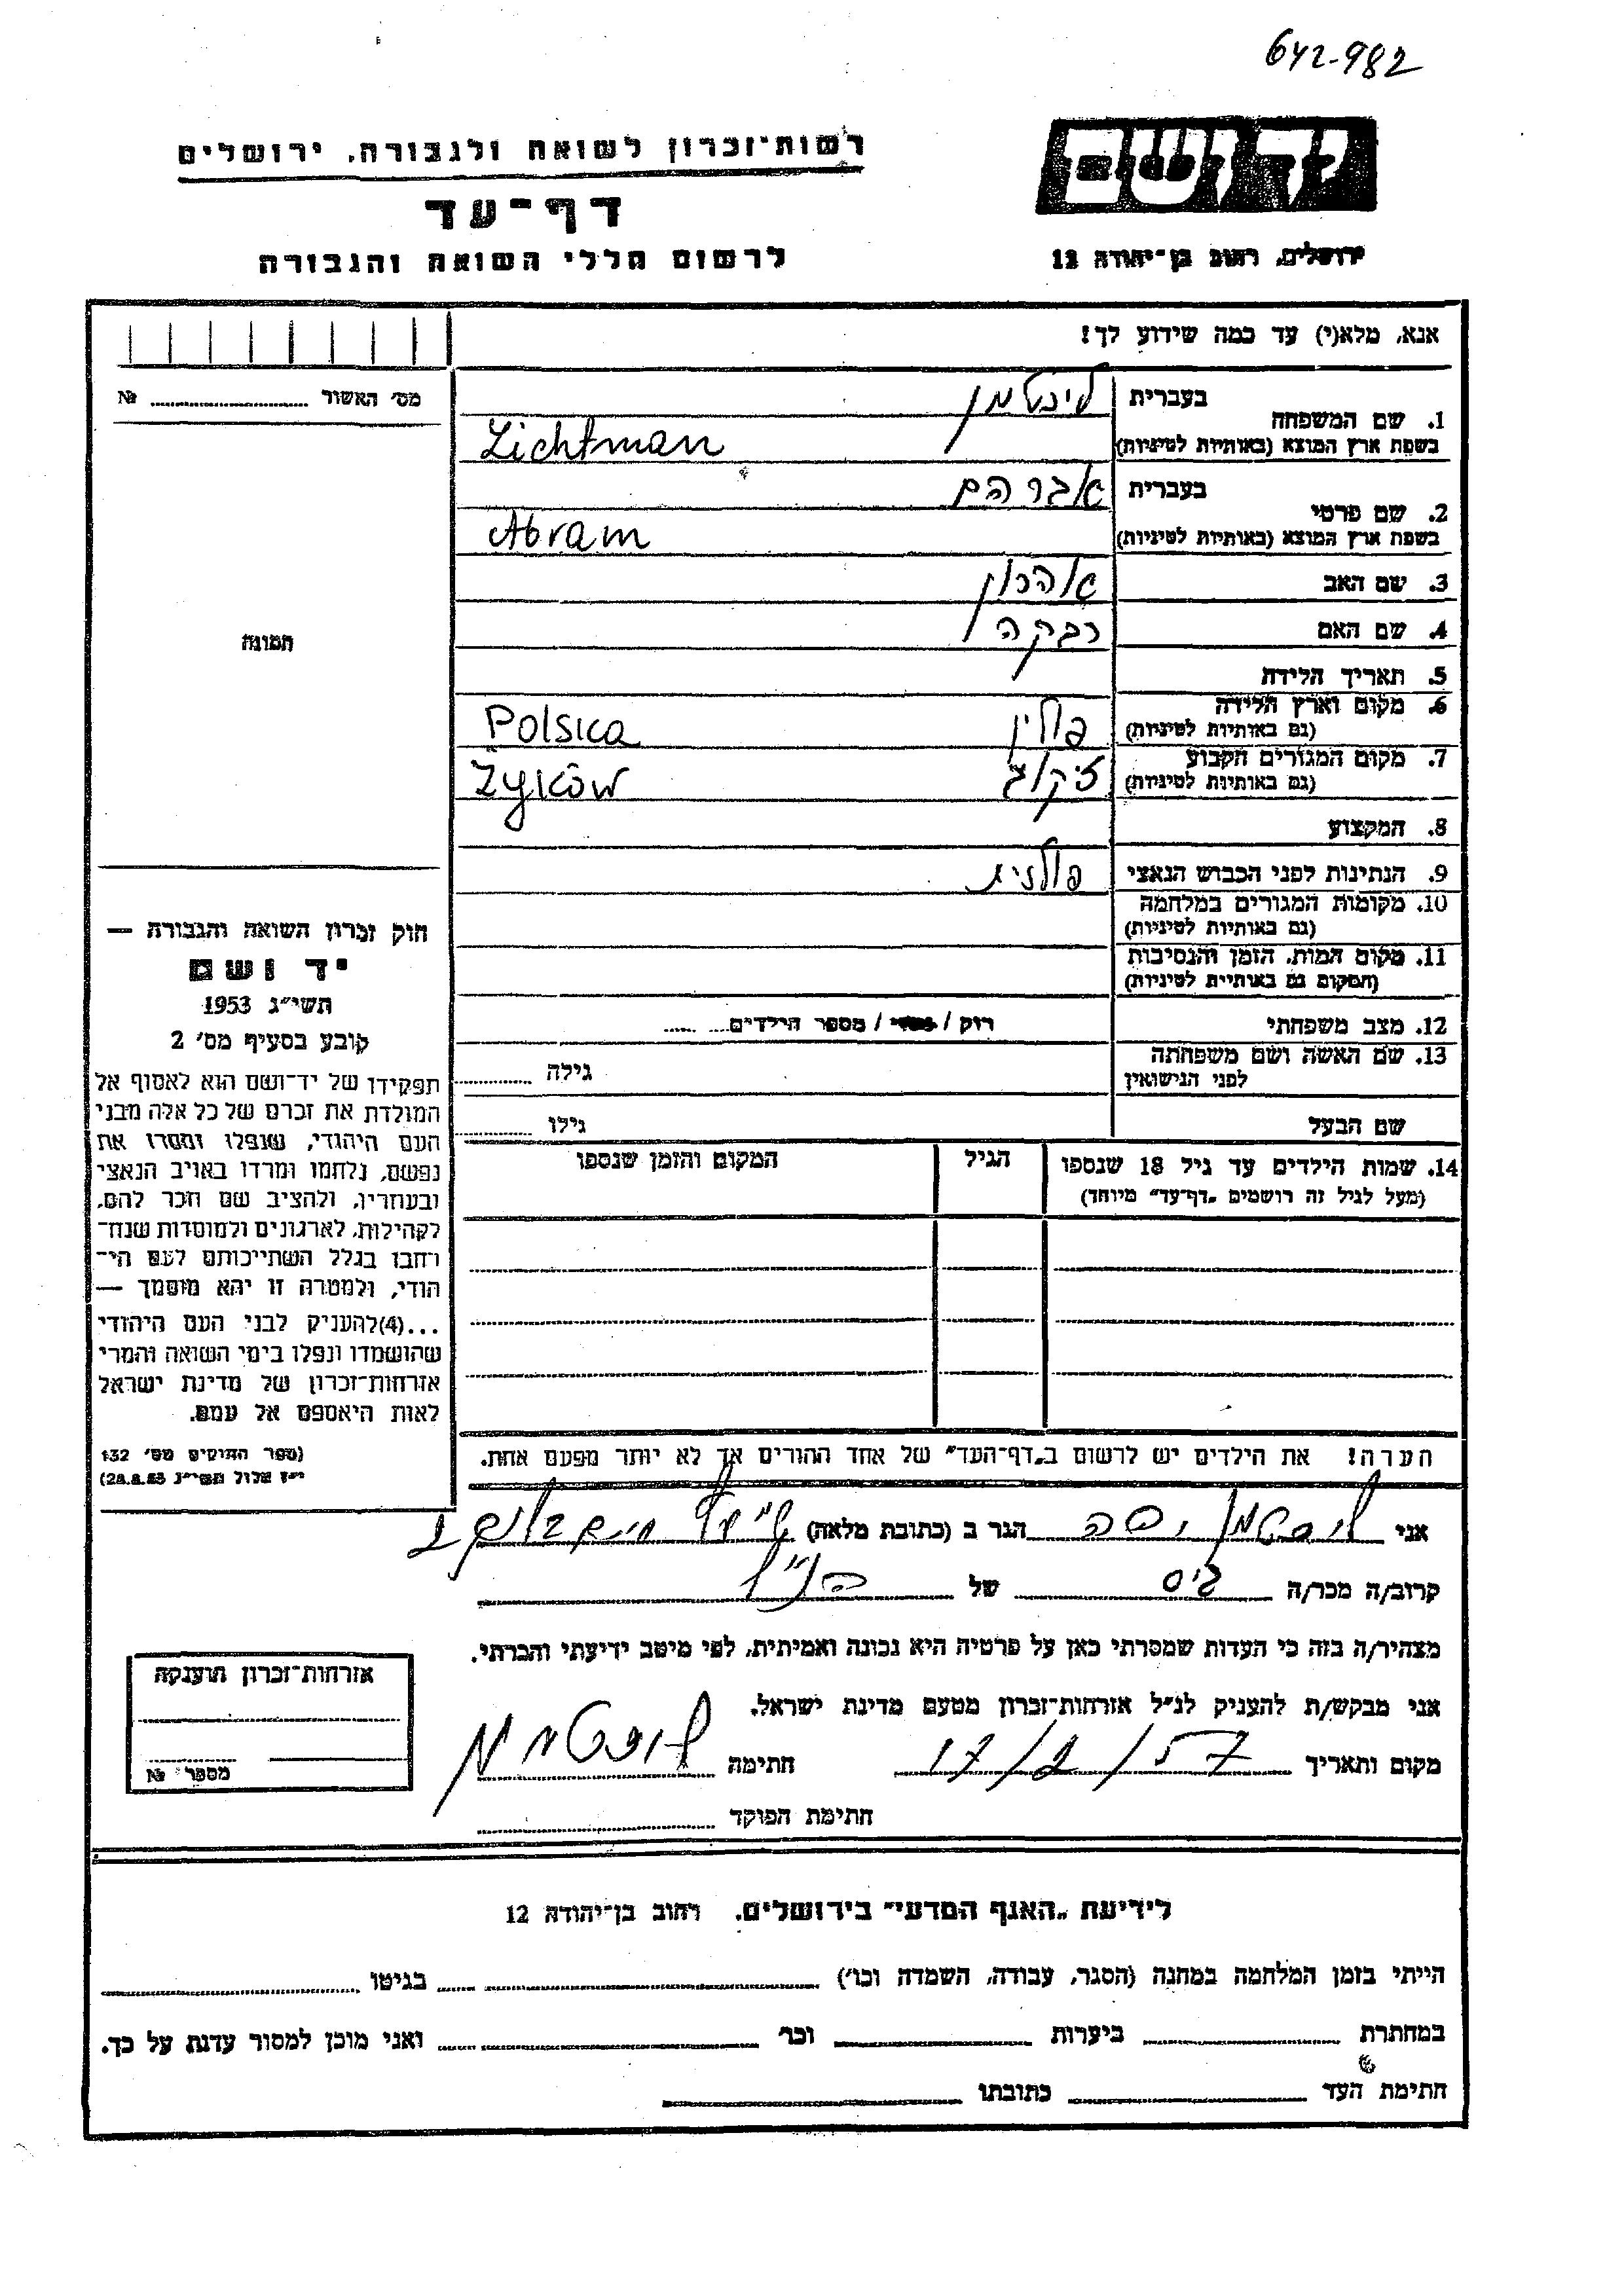 642-982
יד ושם
ירושלים, רחוב בן־יהודה 12
רשות־זכרון לשואה ולגבורה, ירושלים
דף־עד
לרשום חללי השואה והגבורה
אנא, מלא(י) עד כמה שידוע לך!
מס׳ האשור № 
1. שם המשפחה
בעברית ליכטמן
בשפת ארץ המוצא (באותיות לטיניות) Lichtman
2. שם פרטי
בעברית אברהם
בשפת ארץ המוצא (באותיות לטיניות) Abram
3. שם האב אהרון
4. שם האם רבקה
5. תאריך הלידה
6. מקום וארץ הלידה פולין Polska
(גם באותיות לטיניות)
7. מקום המגורים הקבוע Zyków
(גם באותיות לטיניות)
8. המקצוע
9. הנתינות לפני הכבוש הנאצי פולנית
10. מקומות המגורים במלחמה
(גם באותיות לטיניות)
11. מקום המות, הזמן והנסיבות
(המקום גם באותיות לטיניות)
12. מצב משפחתי רוק / נשוי / מספר הילדים
13. שם האשה ושם משפחתה
לפני הנישואין גילה
שם הבעל גילו
14. שמות הילדים עד גיל 18 שנספו
(מעל לגיל זה רושמים „דף־עד״ מיוחד)
הגיל
המקום והזמן שנספו
הערה! את הילדים יש לרשום ב„דף־העד״ של אחד ההורים אך לא יותר מפעם אחת.
תמונה
חוק זכרון השואה והגבורה —
יד ושם
תשי״ג 1953
קובע בסעיף מס׳ 2
תפקידו של יד־ושם הוא לאסוף אל
המולדת את זכרם של כל אלה מבני
העם היהודי, שנפלו ומסרו את
נפשם, נלחמו ומרדו באויב הנאצי
ובעוזריו, ולהציב שם וזכר להם,
לקהילות, לארגונים ולמוסדות שנח־
רחבו בגלל השתייכותם לעם הי־
הודי, ולמטרה זו יהא מוסמך —
...(4)להעניק לבני העם היהודי
שהושמדו ונפלו בימי השואה והמרי
אזרחות־זכרון של מדינת ישראל
לאות היאספם אל עמם.
(ספר החוקים מס׳ 132
י״ז אלול תשי״ג 28.8.53)
אני ליכטמן הגר ב (כתובת מלאה)
קרוב/ה מכר/ה גיס של הנ״ל
מצהיר/ה בזה כי העדות שמסרתי כאן על פרטיה היא נכונה ואמיתית, לפי מיטב ידיעתי והכרתי.
אני מבקש/ת להעניק לנ״ל אזרחות־זכרון מטעם מדינת ישראל.
מקום ותאריך 17/2/57 חתימה ליכטמן
חתימת הפוקד
אזרחות־זכרון הוענקה
מספר №
לידיעת „האגף המדעי״ בירושלים, רחוב בן־יהודה 12
הייתי בזמן המלחמה במחנה (הסגר, עבודה, השמדה וכו׳) בגיטו
במחתרת ביערות וכו׳ ואני מוכן למסור עדות על כך.
חתימת העד כתובתו